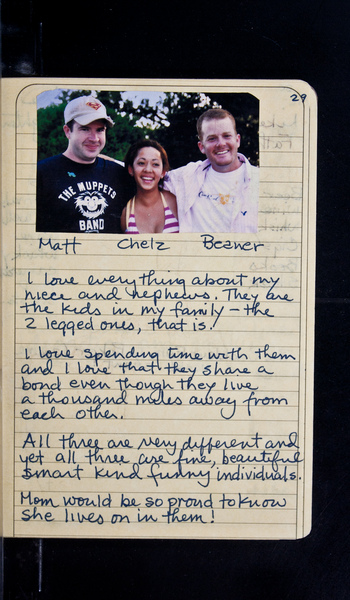 29
THE MUPPETS
BAND
Matt Chelz Beaner
I love everything about my
niece and nephews. They are
the kids in my family – the
2 legged ones, that is!
I love spending time with them
and I love that they share a
bond even though they live
a thousand miles away from
each other.
All three are very different and
yet all three are fine, beautiful
smart kind funny individuals.
Mom would be so proud to know
she lives on in them!